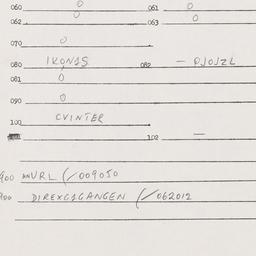 060 0 061 0
062 0 063 0
070 0
080 IKONJS 082 - PJOJZL
081 0
090 0
100 CVINTER
102 —
900 WVRL (/009050
900 DIREXCSGANGEN (/062012